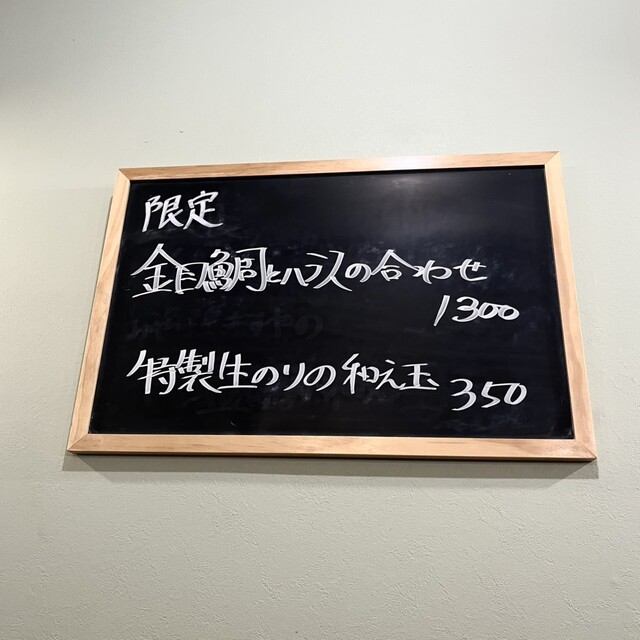 限定
金目鯛とハラスの合わせ
1300
特製生のりの和え玉 350